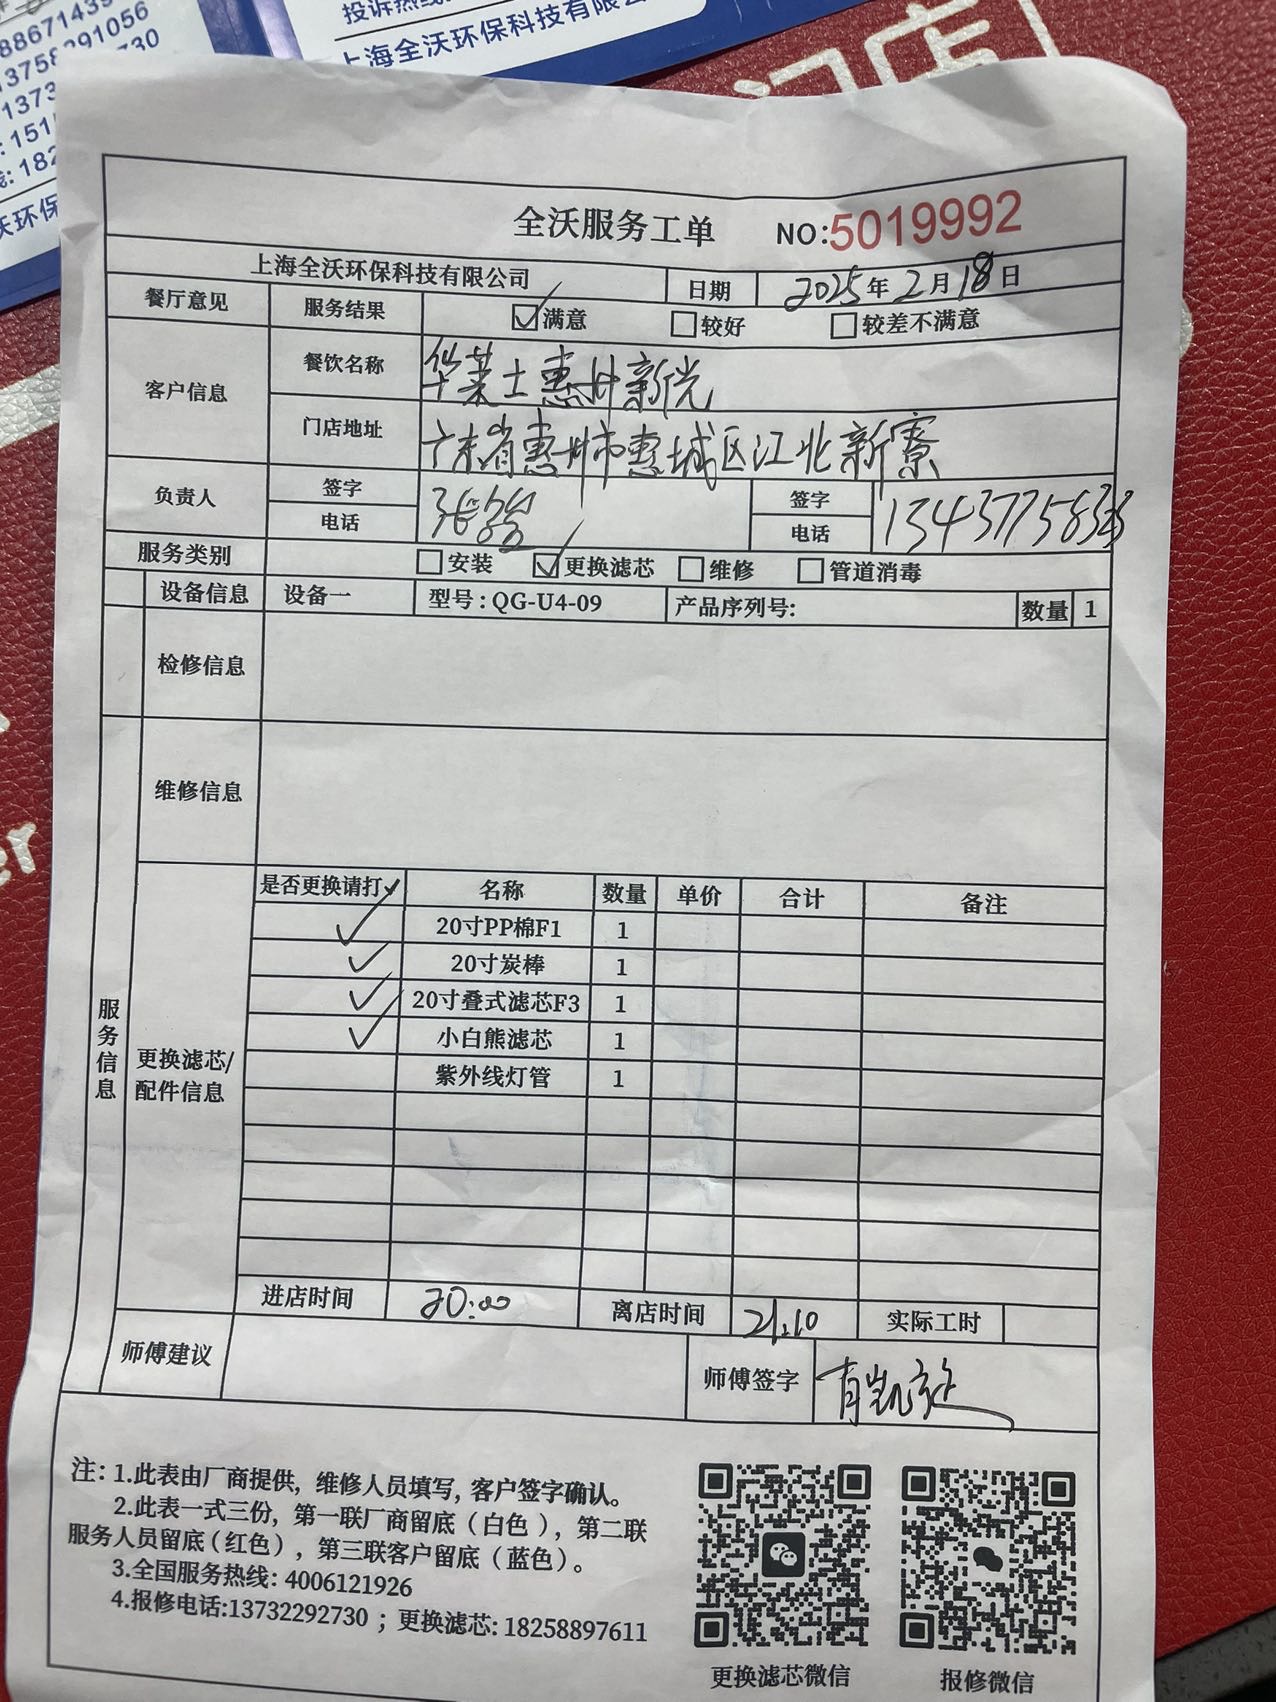 投诉热线
上海全沃环保科技有限公
门店
全沃服务工单 NO:5019992
上海全沃环保科技有限公司 日期 2025年2月18日
餐厅意见 服务结果 ☑满意 □较好 □较差不满意
客户信息 餐饮名称 华莱士惠州新光
门店地址 广东省惠州市惠城区江北新寮
负责人 签字 签字
电话 电话
服务类别 □安装 ☑更换滤芯 □维修 □管道消毒
设备信息 设备一 型号：QG-U4-09 产品序列号： 数量 1
检修信息
维修信息
服务信息
更换滤芯/
配件信息
是否更换请打✓ 名称 数量 单价 合计 备注
✓ 20寸PP棉F1 1
✓ 20寸炭棒 1
✓ 20寸叠式滤芯F3 1
✓ 小白熊滤芯 1
紫外线灯管 1
进店时间 20:00 离店时间 21:10 实际工时
师傅建议 师傅签字
注：1.此表由厂商提供，维修人员填写，客户签字确认。
2.此表一式三份，第一联厂商留底（白色），第二联
服务人员留底（红色），第三联客户留底（蓝色）。
3.全国服务热线：4006121926
4.报修电话:13732292730；更换滤芯：18258897611
更换滤芯微信 报修微信